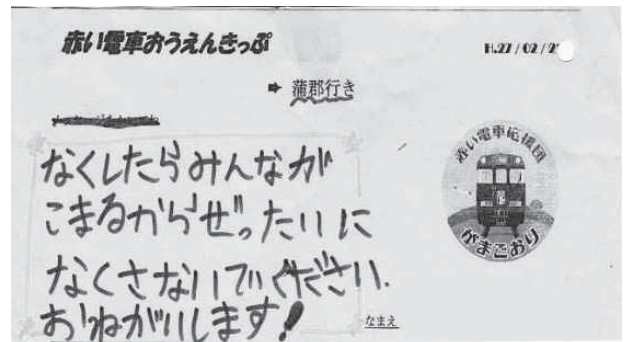 赤い電車おうえんきっぷ
H.27 / 02 / 2
➡ 蒲郡行き
なくしたらみんなが
こまるからぜったいに
なくさないでください.
おねがいします!
赤い電車応援団
がまごおり
なまえ